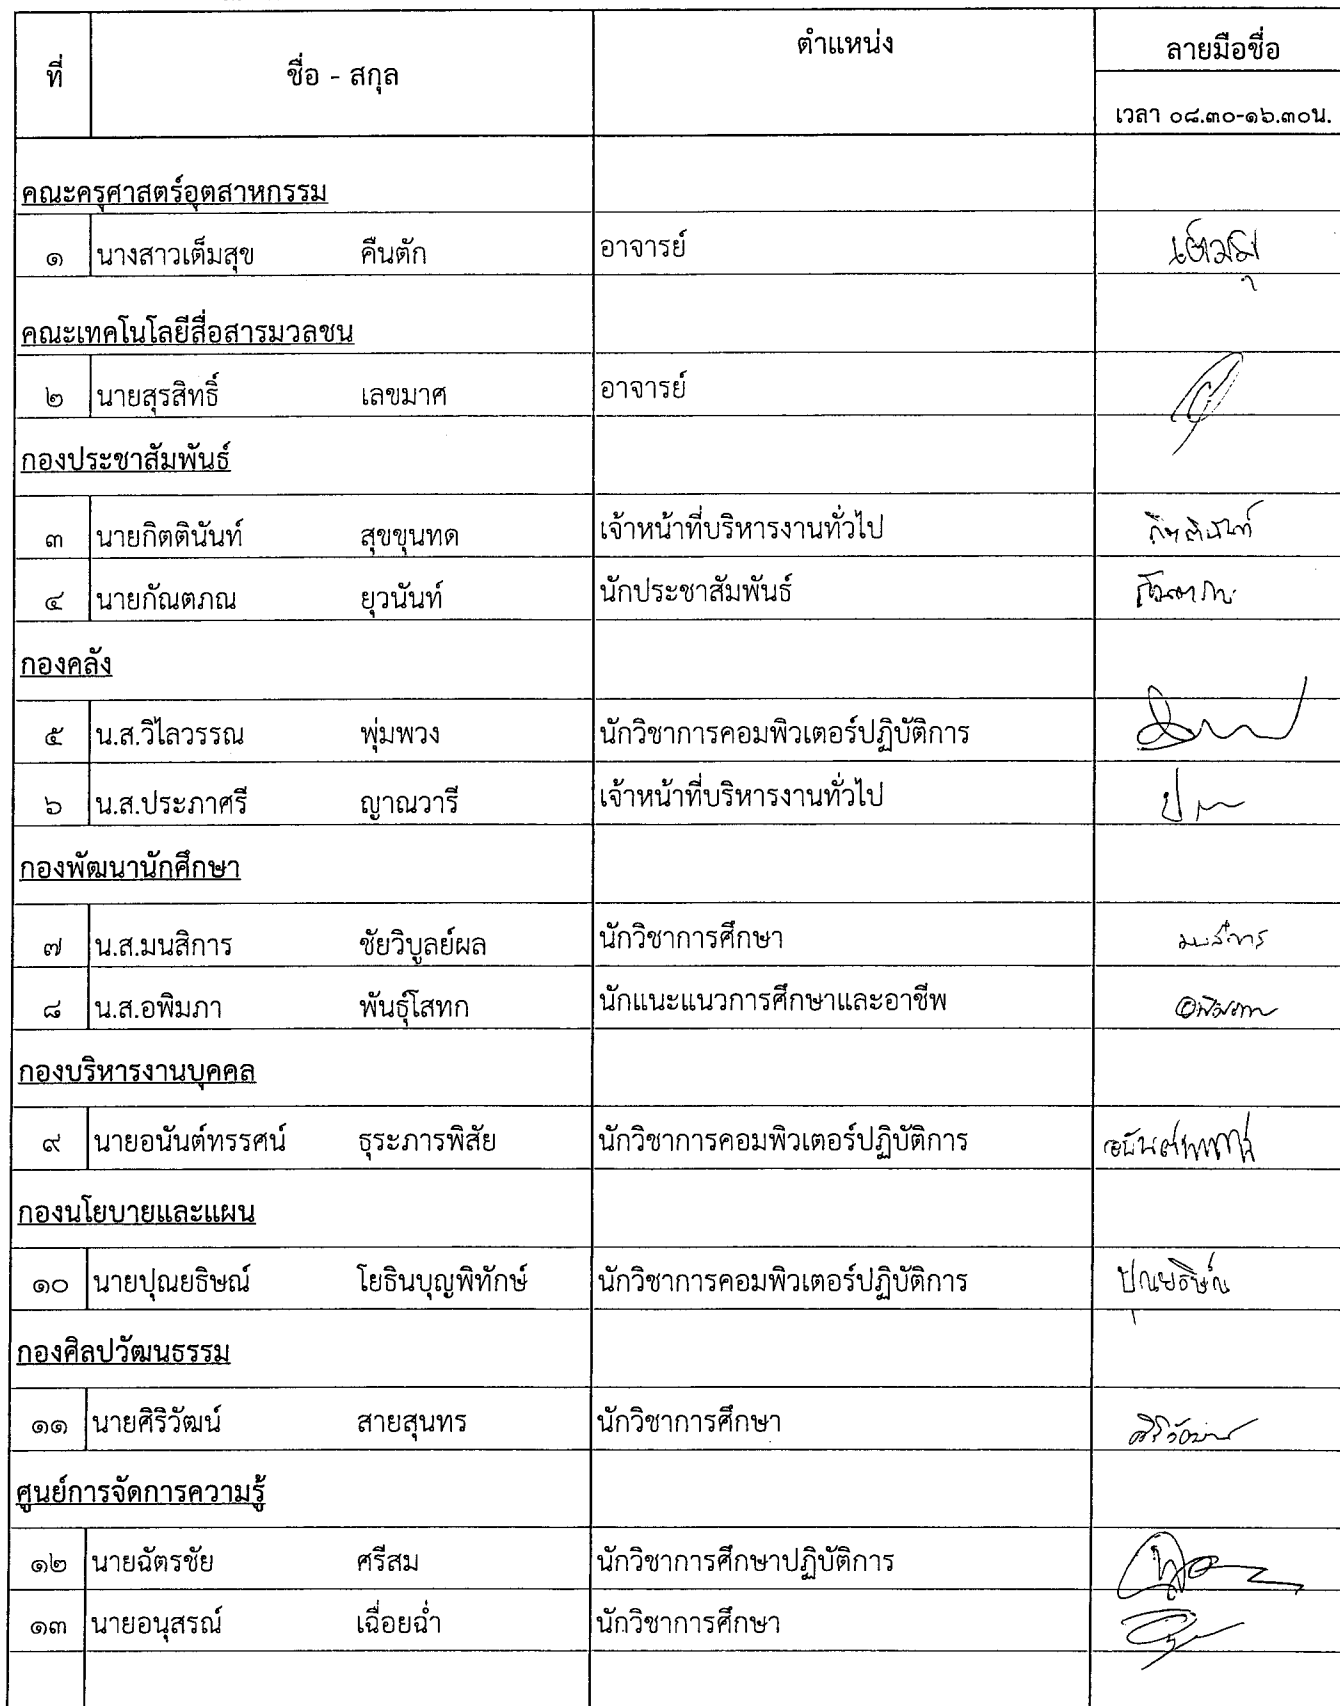 ที่ ชื่อ - สกุล ตำแหน่ง ลายมือชื่อ
เวลา ๐๘.๓๐-๑๖.๓๐น.
คณะครุศาสตร์อุตสาหกรรม
๑ นางสาวเต็มสุข คืนตัก อาจารย์
คณะเทคโนโลยีสื่อสารมวลชน
๒ นายสุรสิทธิ์ เลขมาศ อาจารย์
กองประชาสัมพันธ์
๓ นายกิตตินันท์ สุขขุนทด เจ้าหน้าที่บริหารงานทั่วไป กิตตินันท์
๔ นายกัณตภณ ยุวนันท์ นักประชาสัมพันธ์
กองคลัง
๕ น.ส.วิไลวรรณ พุ่มพวง นักวิชาการคอมพิวเตอร์ปฏิบัติการ
๖ น.ส.ประภาศรี ญาณวารี เจ้าหน้าที่บริหารงานทั่วไป
กองพัฒนานักศึกษา
๗ น.ส.มนสิการ ชัยวิบูลย์ผล นักวิชาการศึกษา มนสิการ
๘ น.ส.อพิมภา พันธุ์โสทก นักแนะแนวการศึกษาและอาชีพ อพิมภา
กองบริหารงานบุคคล
๙ นายอนันต์ทรรศน์ ธุระภารพิสัย นักวิชาการคอมพิวเตอร์ปฏิบัติการ
กองนโยบายและแผน
๑๐ นายปุณยธิษณ์ โยธินบุญพิทักษ์ นักวิชาการคอมพิวเตอร์ปฏิบัติการ ปุณยธิษณ์
กองศิลปวัฒนธรรม
๑๑ นายศิริวัฒน์ สายสุนทร นักวิชาการศึกษา ศิริวัฒน์
ศูนย์การจัดการความรู้
๑๒ นายฉัตรชัย ศรีสม นักวิชาการศึกษาปฏิบัติการ
๑๓ นายอนุสรณ์ เฉื่อยฉ่ำ นักวิชาการศึกษา